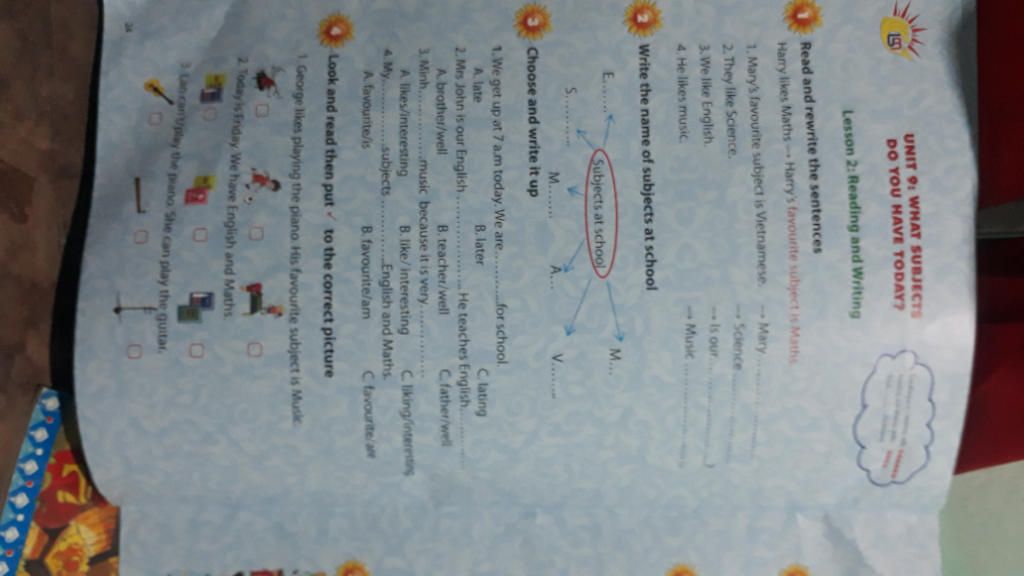 UNIT 9: WHAT SUBJECTS
DO YOU HAVE TODAY?
Lesson 2: Reading and Writing
1 Read and rewrite the sentences
Harry likes Maths → Harry's favourite subject is Maths.
1. Mary's favourite subject is Vietnamese. → Mary...............
2. They like Science. → Science...............
3. We like English. → Is our...............
4. He likes music. → Music...............
2 Write the name of subjects at school
E....... M...
Subjects at school
S........... M....... A... V.......
3 Choose and write it up
1. We get up at 7 a.m today. We are...........for school.
A. late B. later C. lating
2. Mrs John is our English............... He teaches English...........
A. brother/well B. teacher/well C. father/well
3. Minh...............music because it is very...........
A. likes/interesting B. like/ interesting C. liking/interesting
4. My...............subjects...............English and Maths.
A. favourite/is B. favourite/am C. favourite/are
4 Look and read then put ✓ to the correct picture
1. George likes playing the piano. His favourite subject is Music.
2. Today is Friday. We have English and Maths.
3. can play the piano. She can play the guitar.
24